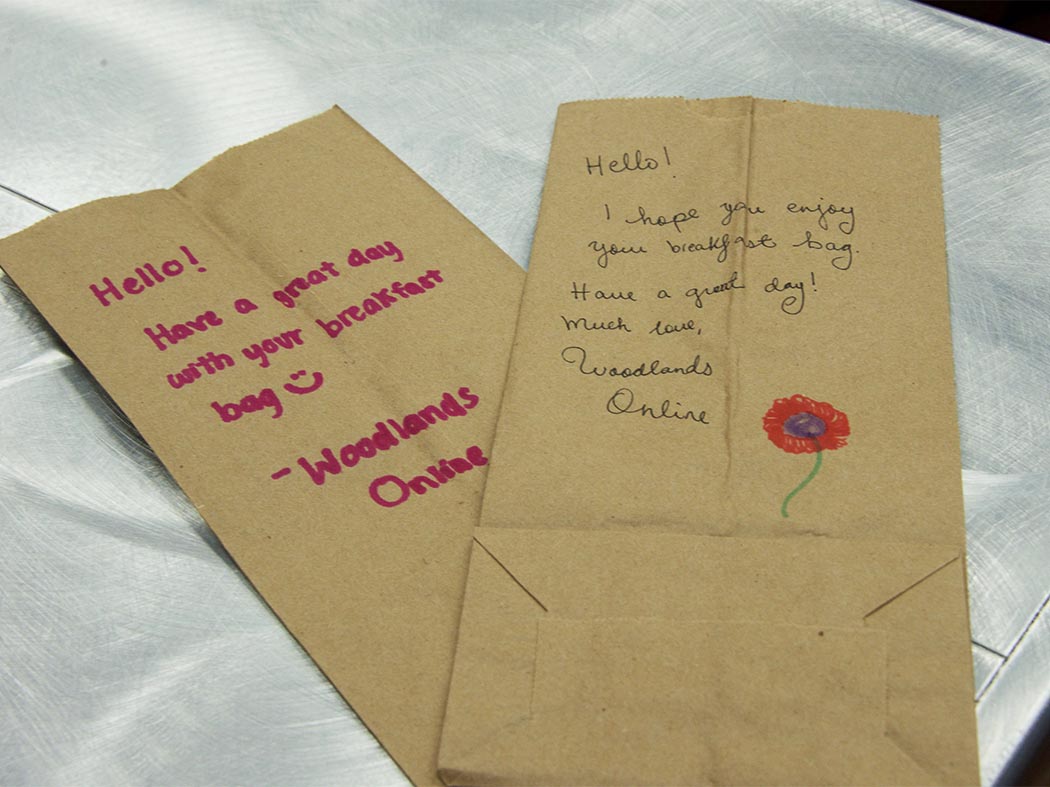 Hello!
Have a great day
with your breakfast
bag
- Woodlands
Online
Hello!
I hope you enjoy
your breakfast bag.
Have a great day!
Much love,
Woodlands
Online